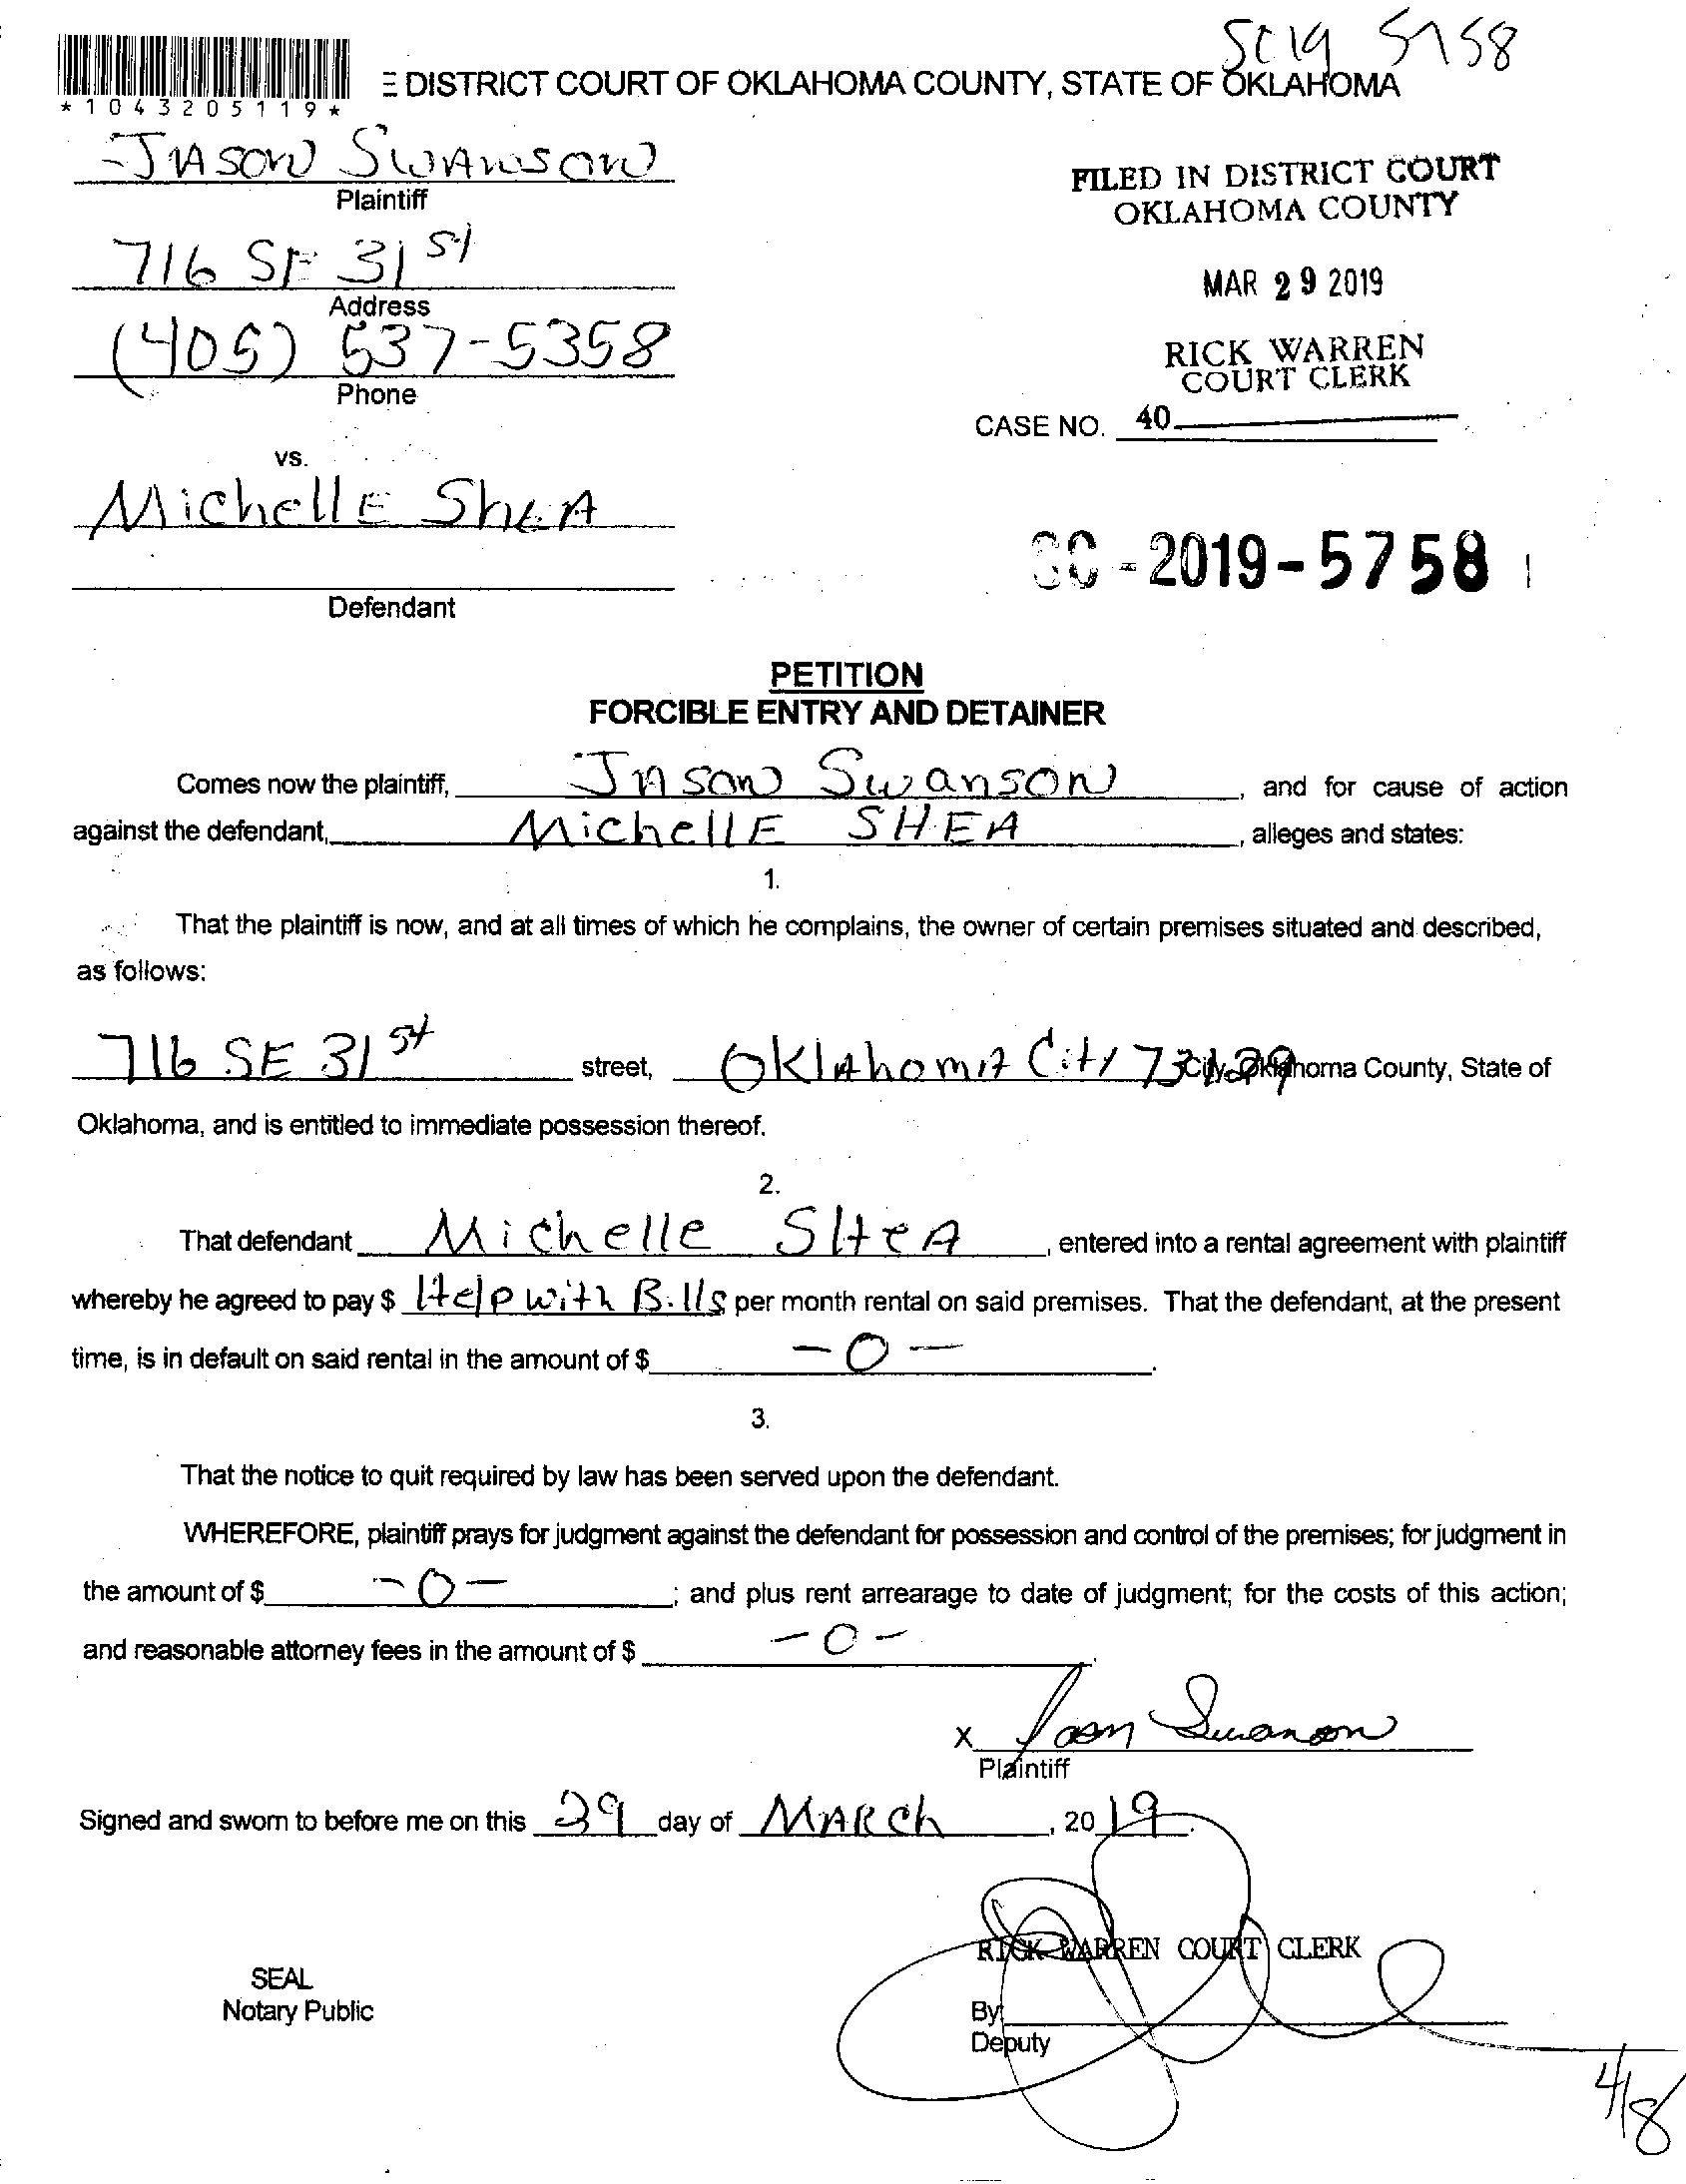 SC19 5758
DISTRICT COURT OF OKLAHOMA COUNTY, STATE OF OKLAHOMA
*1043205119*
JASON SWANSON
Plaintiff
716 SE 31 st
Address
(405) 537-5358
Phone
FILED IN DISTRICT COURT
OKLAHOMA COUNTY
MAR 29 2019
RICK WARREN
COURT CLERK
CASE NO. 40
vs.
MichellE ShEA
Defendant
SC-2019-5758
PETITION
FORCIBLE ENTRY AND DETAINER
Comes now the plaintiff, JASON SwansON, and for cause of action
against the defendant, MichellE SHEA, alleges and states:
1.
That the plaintiff is now, and at all times of which he complains, the owner of certain premises situated and described,
as follows:
716 SE 31 st street, OklAhomA City 73129 City, Oklahoma County, State of
Oklahoma, and is entitled to immediate possession thereof.
2.
That defendant Michelle SHeA, entered into a rental agreement with plaintiff
whereby he agreed to pay $ Help with Bills per month rental on said premises. That the defendant, at the present
time, is in default on said rental in the amount of $ -0-.
3.
That the notice to quit required by law has been served upon the defendant.
WHEREFORE, plaintiff prays for judgment against the defendant for possession and control of the premises; for judgment in
the amount of $ -0-; and plus rent arrearage to date of judgment; for the costs of this action;
and reasonable attorney fees in the amount of $ -0-.
X Jason Swanson
Plaintiff
Signed and sworn to before me on this 29 day of MARch, 2019.
RICK WARREN COURT CLERK
SEAL
Notary Public
By
Deputy
4/8